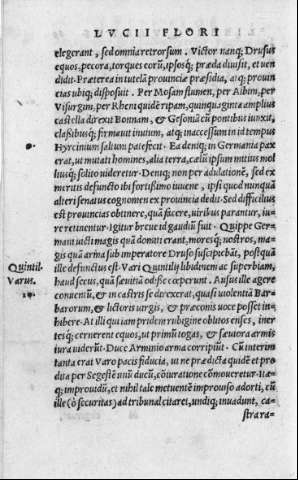 LVCII FLORI
elegerant, sed omnia retrorsum. Victor nanq; Drusus
equos, pecora, torques eorũ, ipsosq; præda diuisit, et uen
didit. Præterea in tutelã prouinciæ præsidia, atq; prouin
cias ubiq; disposuit. Per Mosam flumen, per Albim, per
Visurgim, per Rheni quidẽ ripam, quinquaginta amplius
castella direxit Bonnam, & Gesoniã cũ pontibus iunxit,
classibusq; firmauit inuium, atq; inaccessum in id tempus
Hyrcinum saltum patefecit. Ea deniq; in Germania pax
erat, ut mutati homines, alia terra, cælũ ipsum mitius mol
liusq; solito uideretur. Deniq; non per adulationẽ, sed ex
meritis defuncto ibi fortissimo iuuene, ipsi quod nunquã
alteri senatus cognomen ex prouincia dedit. Sed difficilius
est prouincias obtinere, quã facere, uiribus parantur, iu-
re retinentur. Igitur breue id gaudiũ fuit. Quippe Ger-
mani uicti magis quã domiti erant, moresq; nostros, ma-
gis quã arma sub imperatore Druso suspiciebãt, postquã
ille defunctus est. Vari Quintilij libidinem ac superbiam,
haud secus, quã sæuitiã odisse cœperunt. Ausus ille agere
conuentũ, & in castris se direxerat, quasi uiolentiã Bar-
barorum, & lictoris uirgis, & præconis uoce posset in-
hibere. At illi qui iam pridem rubigine oblitos enses, iner
tesq; cernerent equos, ut primũ togas, & sæuiora armis
iura uiderũt. Duce Arminio arma corripiũt. Cũ interim
tanta erat Varo pacis fiducia, ut ne prædicta quidẽ et pro
dita per Segestẽ unũ ducũ, cõiuratione cõmoueretur. Ita-
q; improuidũ, et nihil tale metuentẽ improuiso adorti, cũ
ille (ô securitas) ad tribunal citaret, undiq; inuadunt, ca-
stra ra-
Quintil.
Varus.